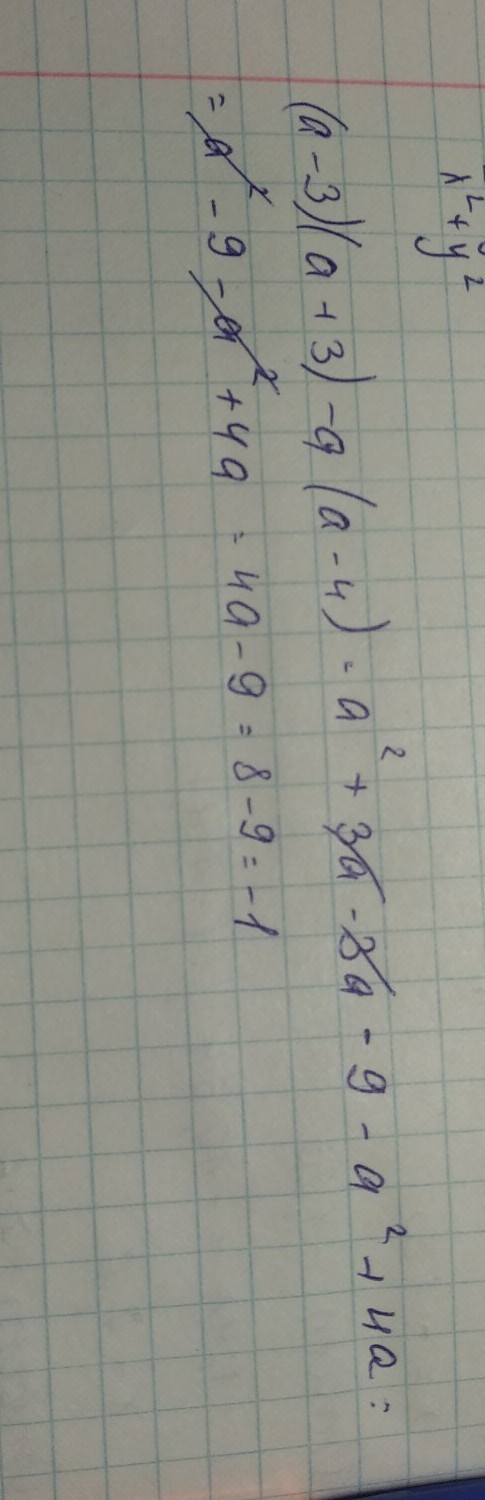 x² + y²
(a - 3)(a + 3) - a (a - 4) = a² + 3a - 3a - 9 - a² + 4a =
= a² - 9 - a² + 4a = 4a - 9 = 8 - 9 = -1